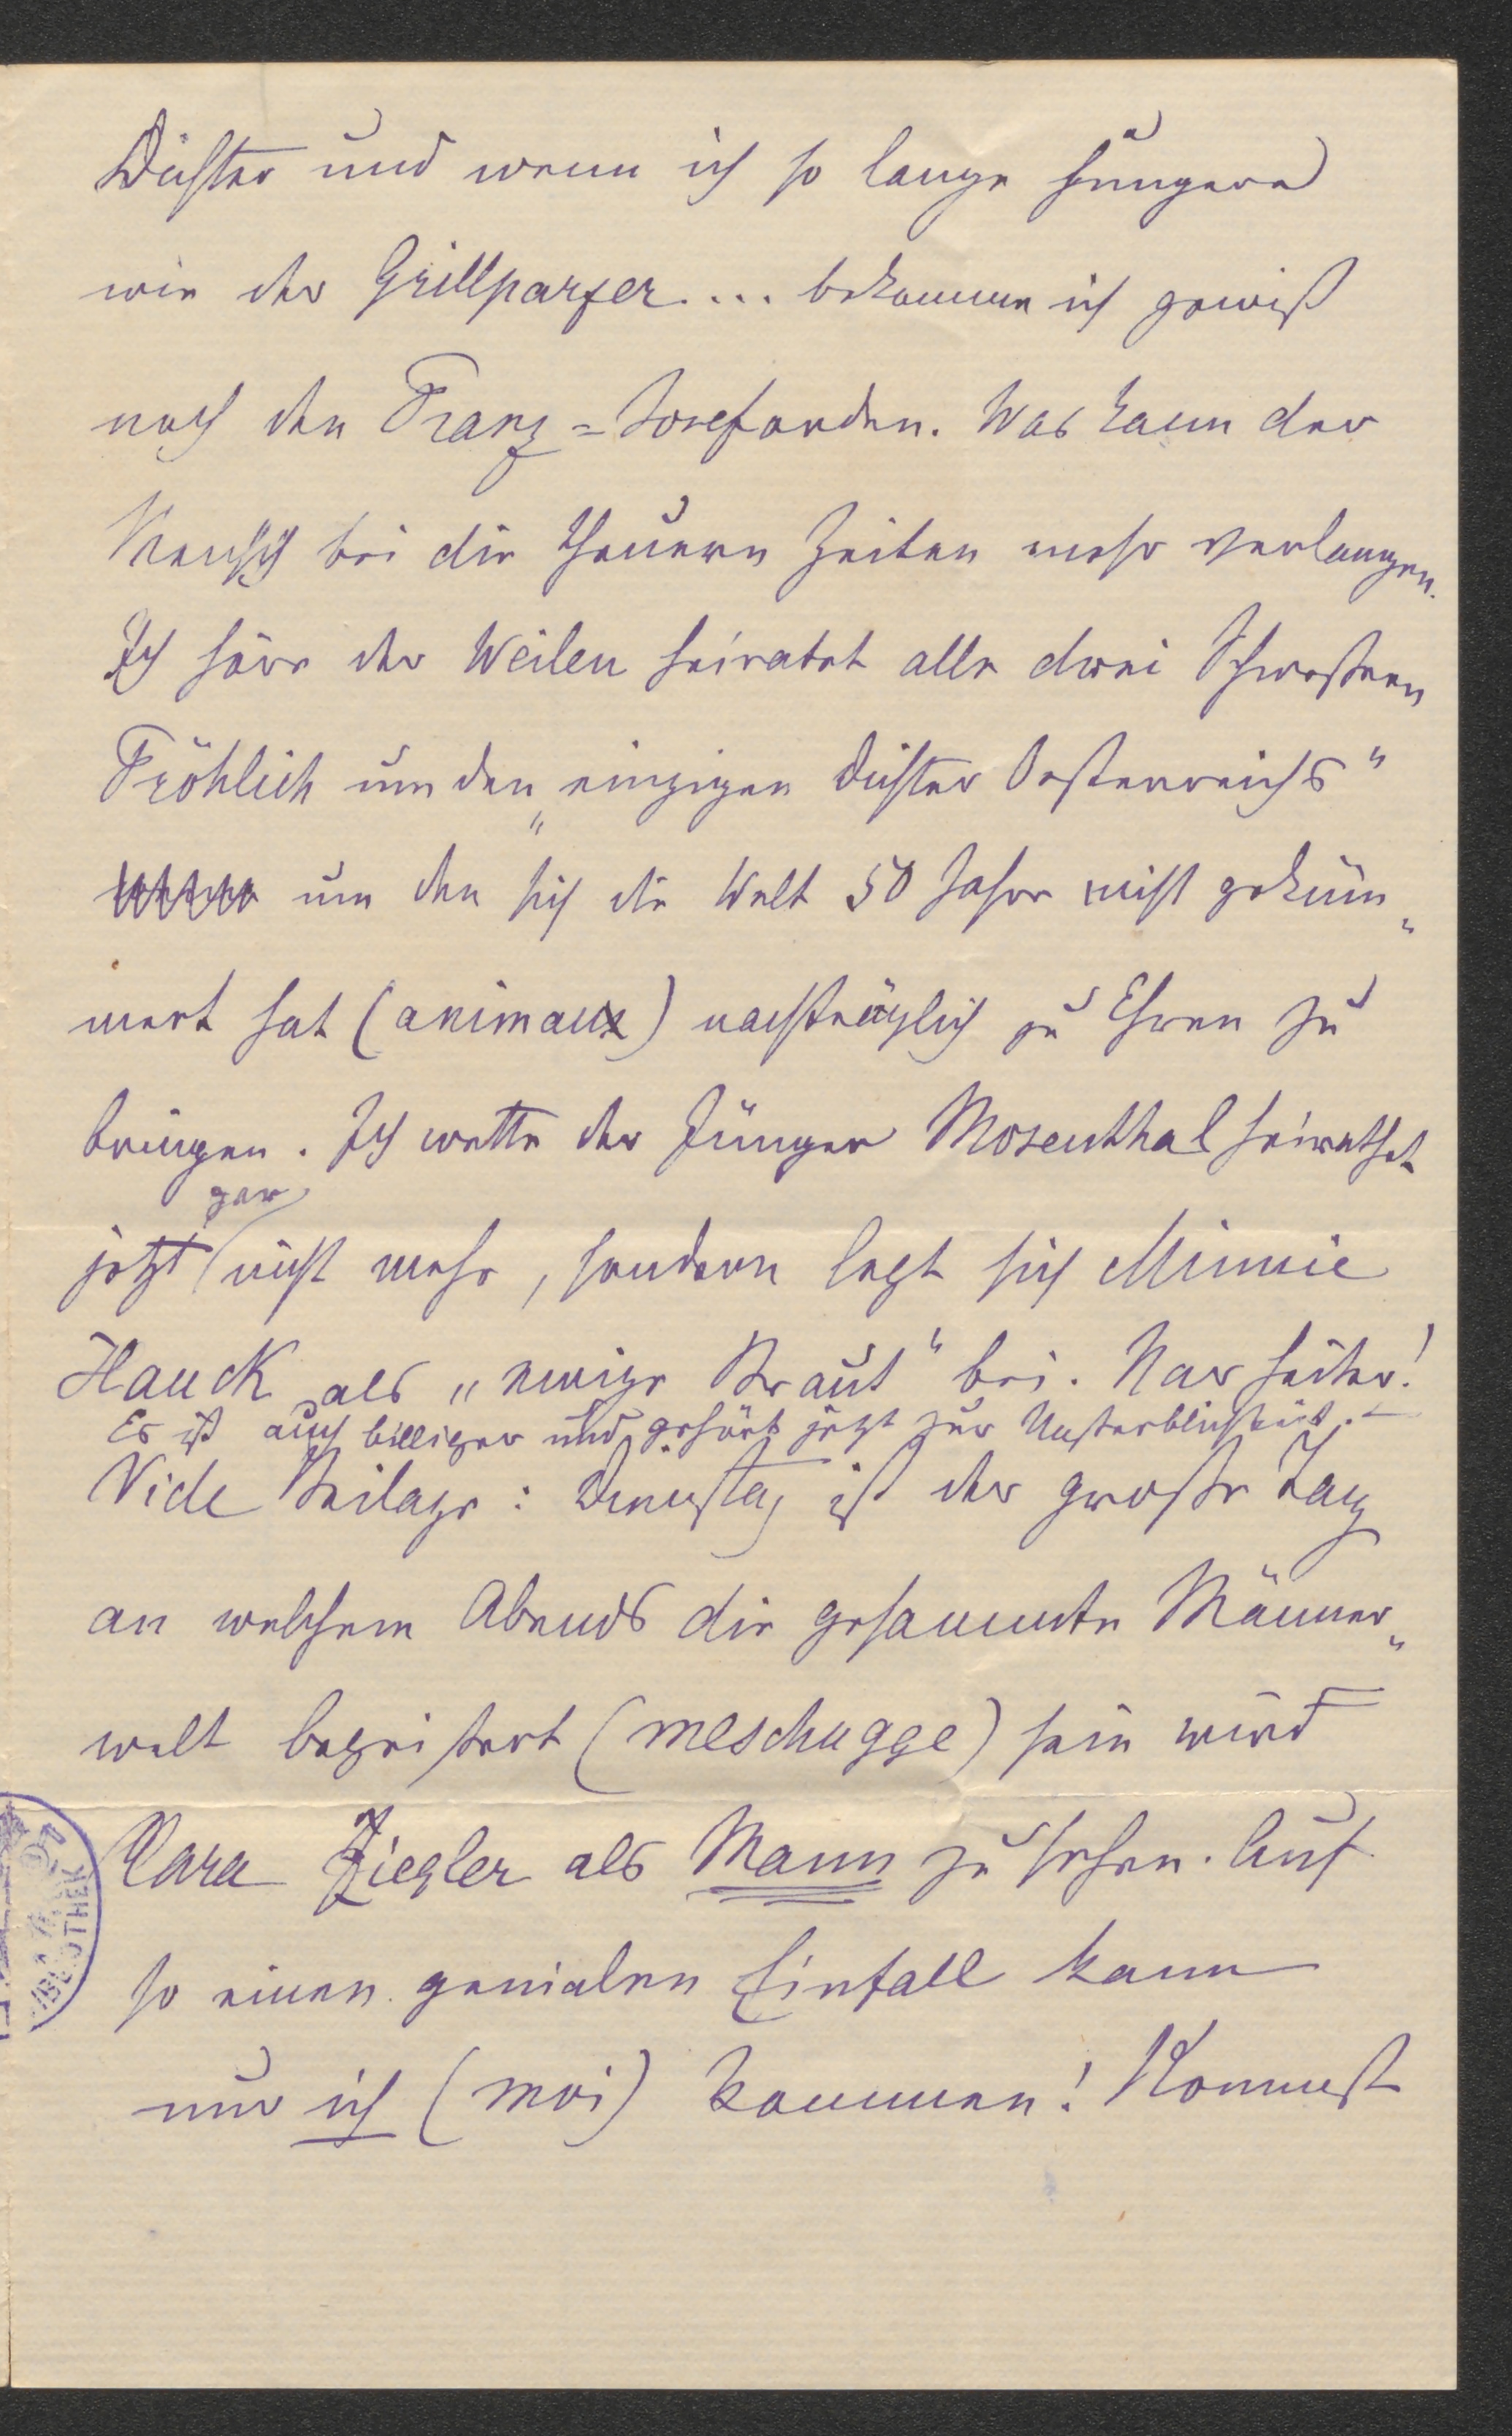 Dichter und wenn ich so lange hungere
wie der Grillparzer.... bekomme ich gewiß
noch den Franz=Joseforden. Was kann der
Mensch bei die theuern Zeiten mehr verlangen.
Ich höre der Weilen heiratet alle drei Schwestern
Fröhlich um den „einzigen Dichter Oesterreichs"
um den sich die Welt 50 Jahre nicht geküm„
mert hat (animaux) nachträglich zu Ehren zu
bringen. Ich wette der Jünger Mosenthal heirathet
gar
jetzt nicht mehr, sondern legt sich Minnie
Hauck als „ewige Braut" bei.
Es ist auch billiger und gehört jetzt zur Unsterblichkeit. –
Vide Beilage: Dienstag ist der große Tag
an welchem Abends die gesammte Männer„
welt begeistert (meschugge) sein wird
Clara Ziegler als Mann zu sehen. Auf
so einen genialen Einfall kann
nur ich (moi) kommen! Kommst